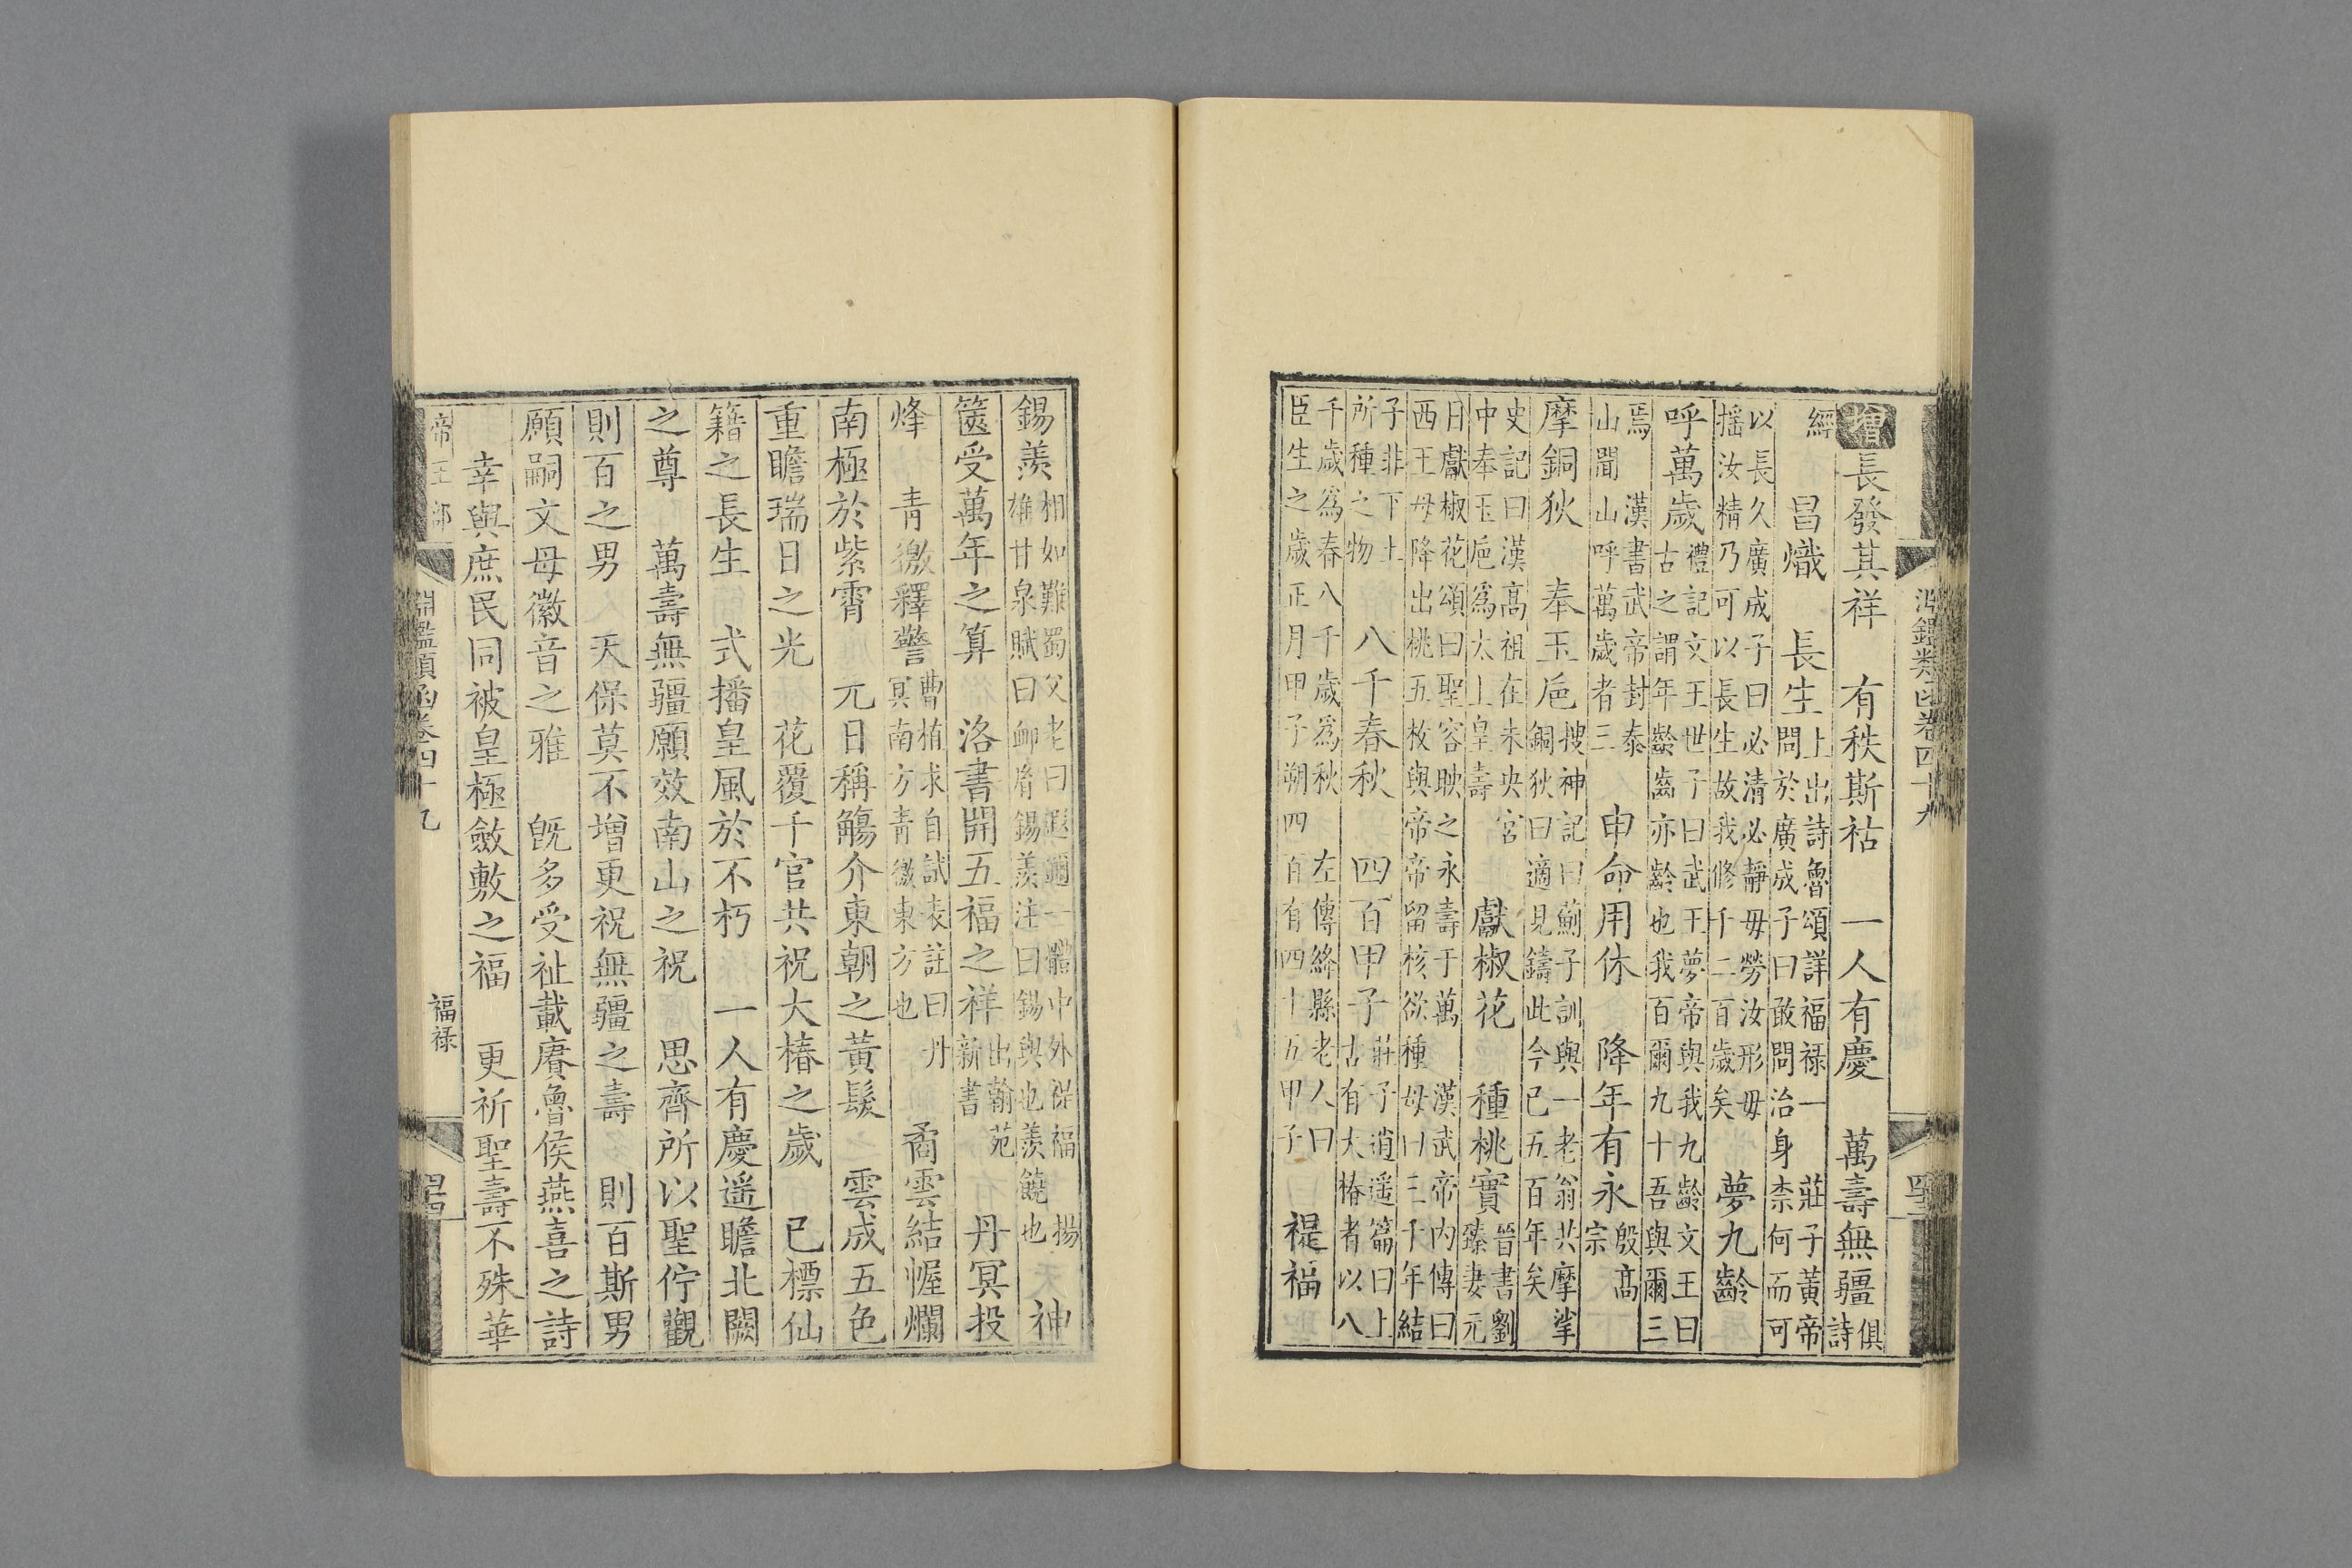 淵鑑類函卷四十九
增長發其祥　有秩斯祜　一人有慶　萬壽無疆俱詩
經　昌熾　長生上出詩魯頌詳福祿一　莊子黃帝問於廣成子曰敢問治身柰何而可
以長久廣成子曰必清必靜毋勞汝形毋搖汝精乃可以長生故我修千二百歲矣　夢九齡
呼萬歲禮記文王世子曰武王夢帝與我九齡文王曰古之謂年齡齒亦齡也我百爾九十吾與爾三
焉　漢書武帝封泰山聞山呼萬歲者三　申命用休　降年有永殷高宗
摩銅狄　奉玉巵搜神記曰薊子訓與一老翁共摩挲銅狄曰適見鑄此今已五百年矣
史記曰漢高祖在未央宮中奉玉巵爲太上皇壽　獻椒花　種桃實晉書劉臻妻元
日獻椒花頌曰聖容映之永壽于萬　漢武帝內傳曰西王母降出桃五枚與帝帝留核欲種母曰三千年結
子非下土所種之物　八千春秋　四百甲子莊子逍遥篇曰上古有大椿者以八
千歲爲春八千歲爲秋　左傳絳縣老人曰臣生之歲正月甲子朔四百有四十五甲子　禔福
錫羨相如難蜀父老曰遐邇一體中外禔福　揚雄甘泉賦曰卹胤錫羨注曰錫與也羨饒也　神
篋受萬年之算　洛書開五福之祥出翰苑新書　丹冥投
烽　青徼釋警曹植求自試表註曰丹冥南方青徼東方也　矞雲結幄爛
南極於紫霄　元日稱觴介東朝之黃髮　雲成五色
重瞻瑞日之光　花覆千官共祝大椿之歲　已標仙
籍之長生　式播皇風於不朽　一人有慶遥瞻北闕
之尊　萬壽無疆願效南山之祝　思齊所以聖佇觀
則百之男　天保莫不增更祝無疆之壽　則百斯男
願嗣文母徽音之雅　旣多受祉載賡魯侯燕喜之詩
幸與庶民同被皇極斂敷之福　更祈聖壽不殊華
帝王部　淵鑑類函卷四十九　福祿